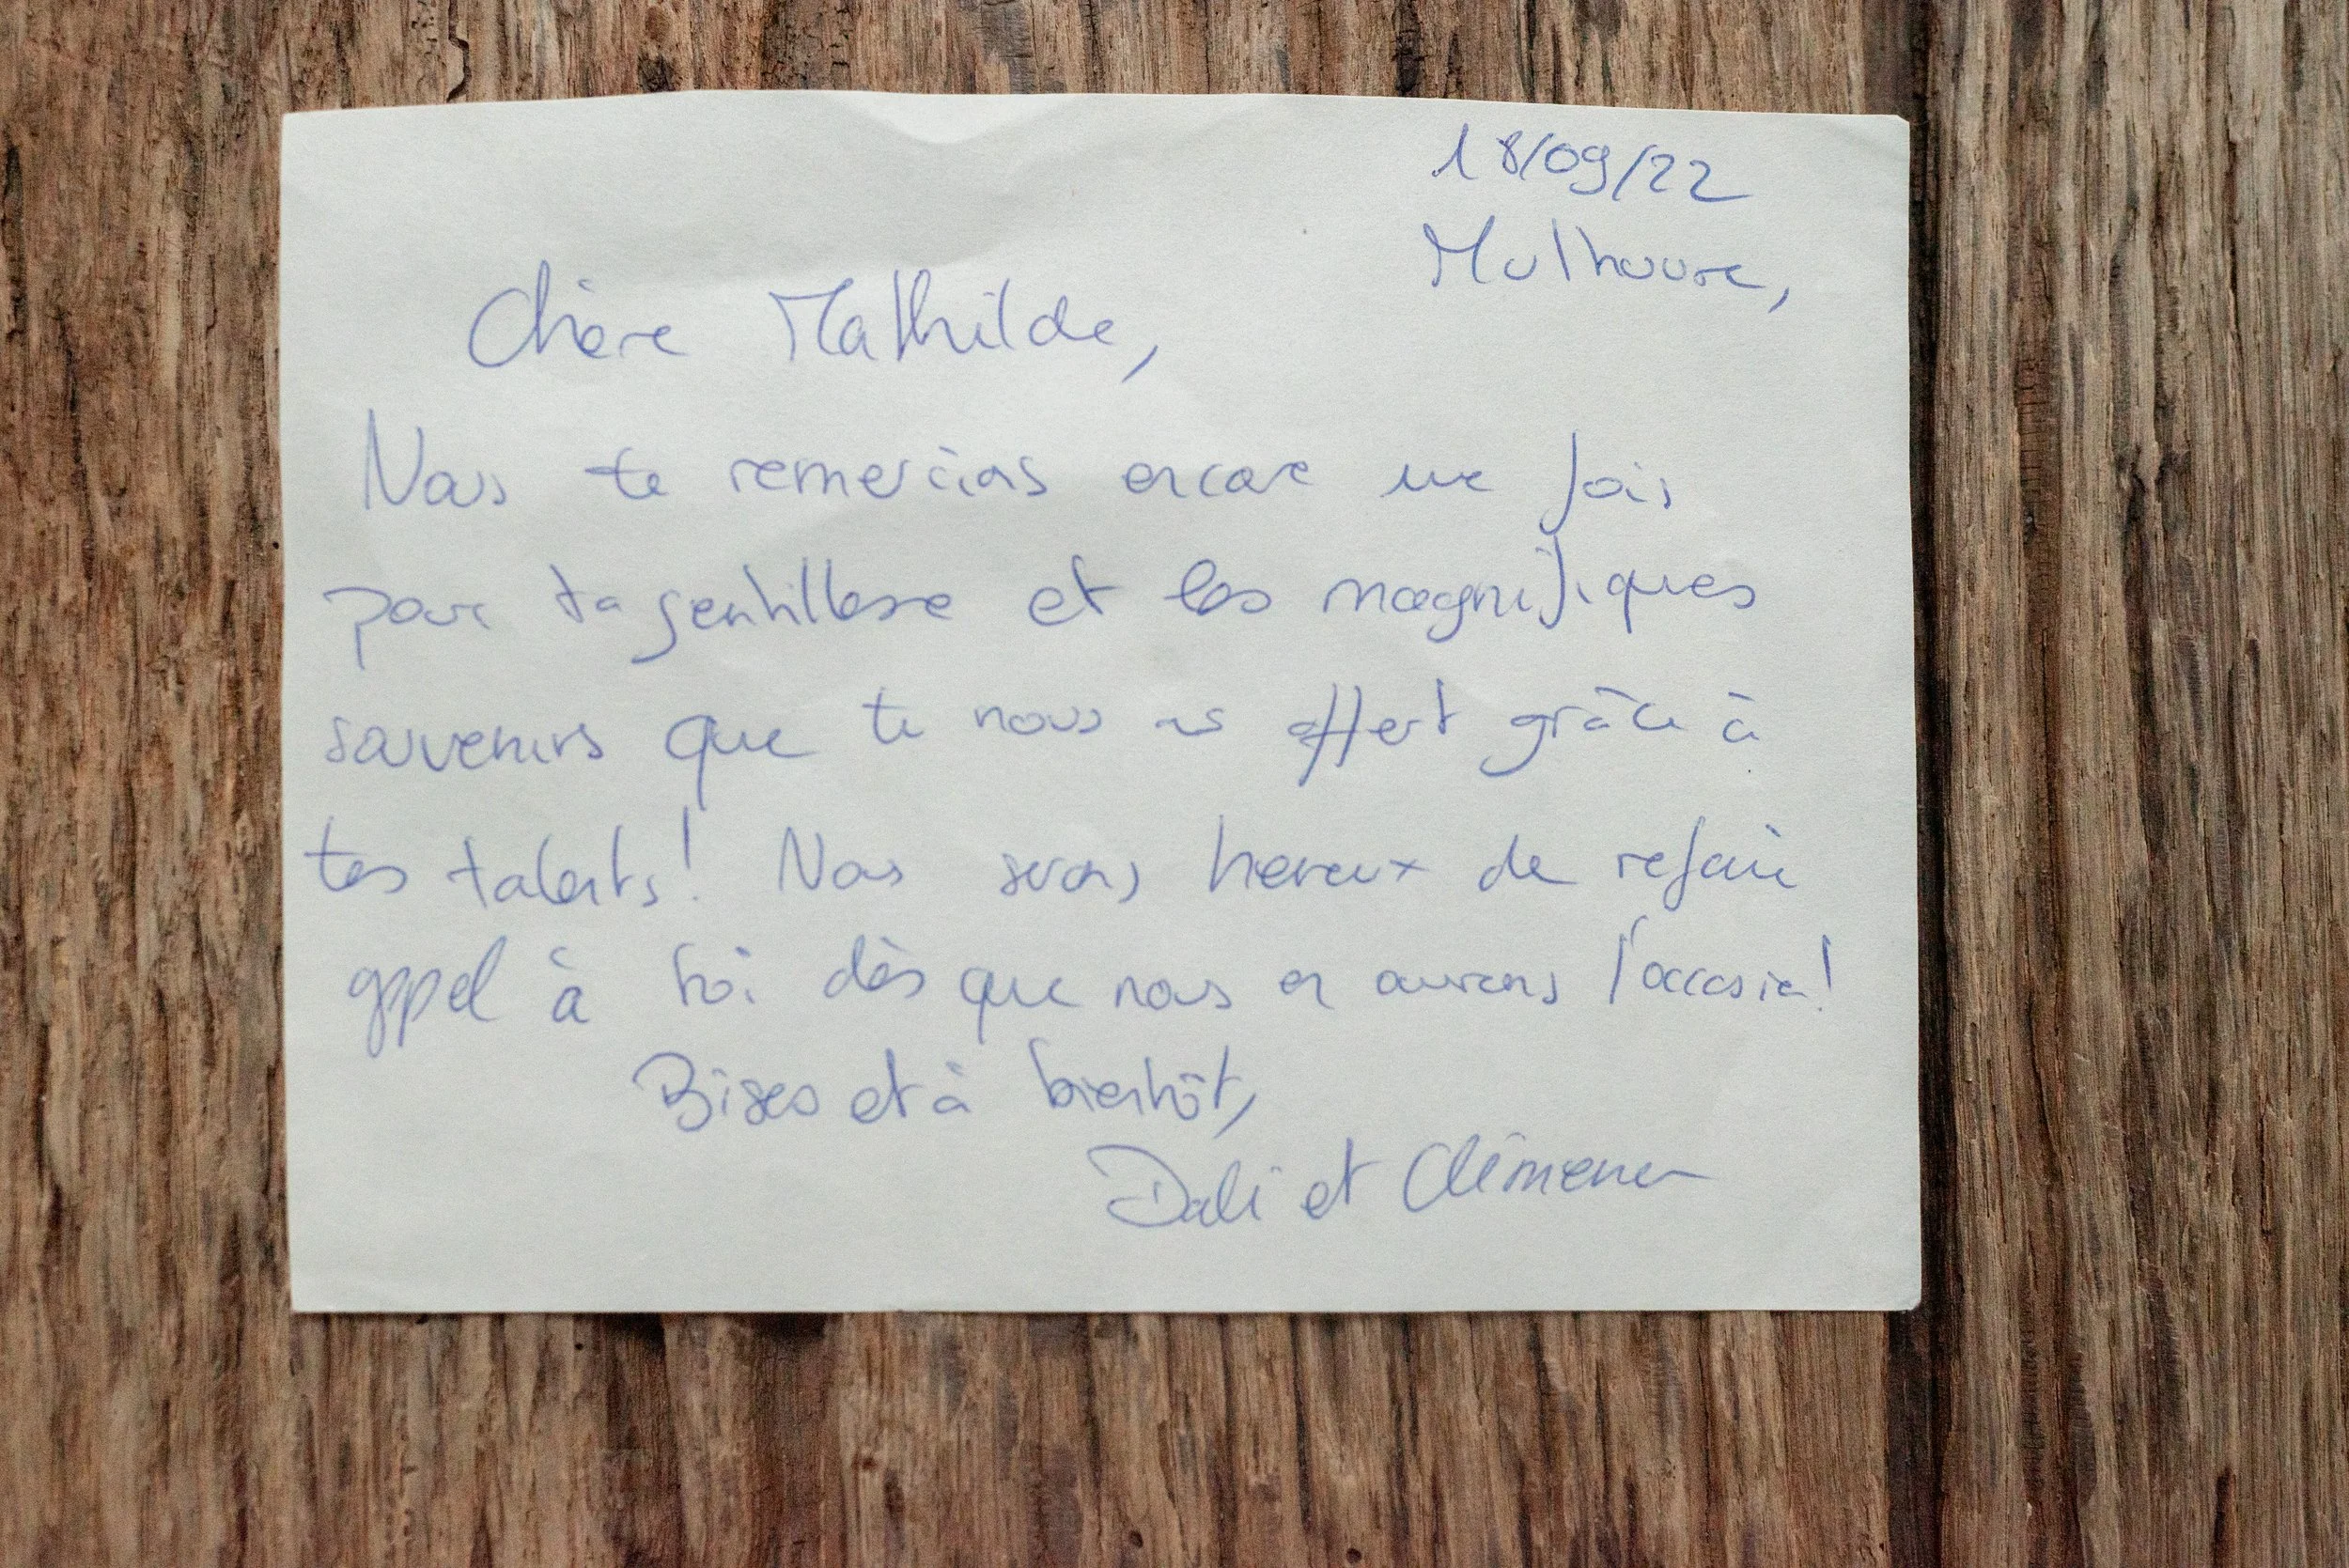 18/09/22
Mulhouse,
Chère Mathilde,
Nous te remercions encore une fois
pour ta gentillesse et les magnifiques
souvenirs que tu nous as offert grâce à
tes talents! Nous serons heureux de refaire
appel à toi dès que nous en aurons l'occasion!
Bises et à bientôt,
Dali et Clémence